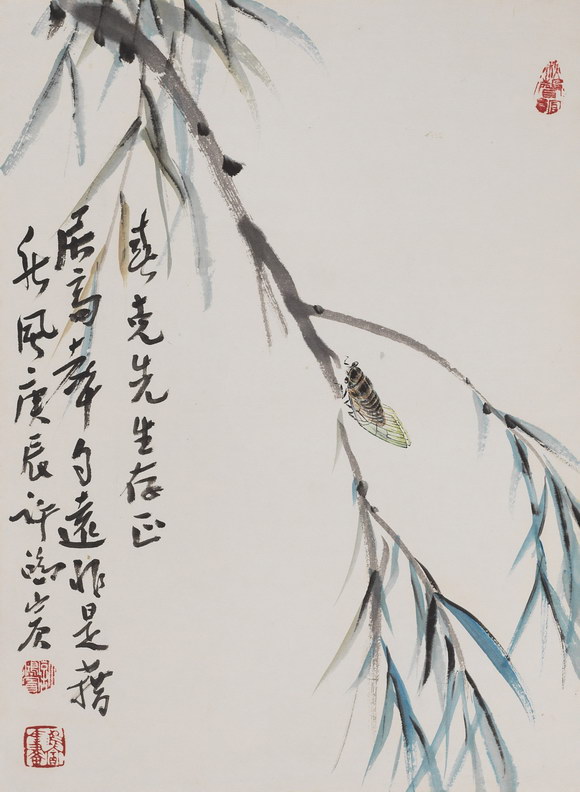 春克先生存正
居高聲自遠非是藉
秋風庚辰許臨